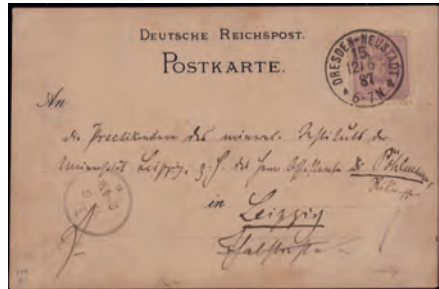 DEUTSCHE REICHSPOST.
POSTKARTE.
DRESDEN-NEUSTADT
15
12/6
87
6-7N
An
die Practikanten des mineral. Instituts der
Universität Leipzig, z. H. des Herrn Assistenten Dr. Pöhlmann,
in
Leipzig
Thalstrasse